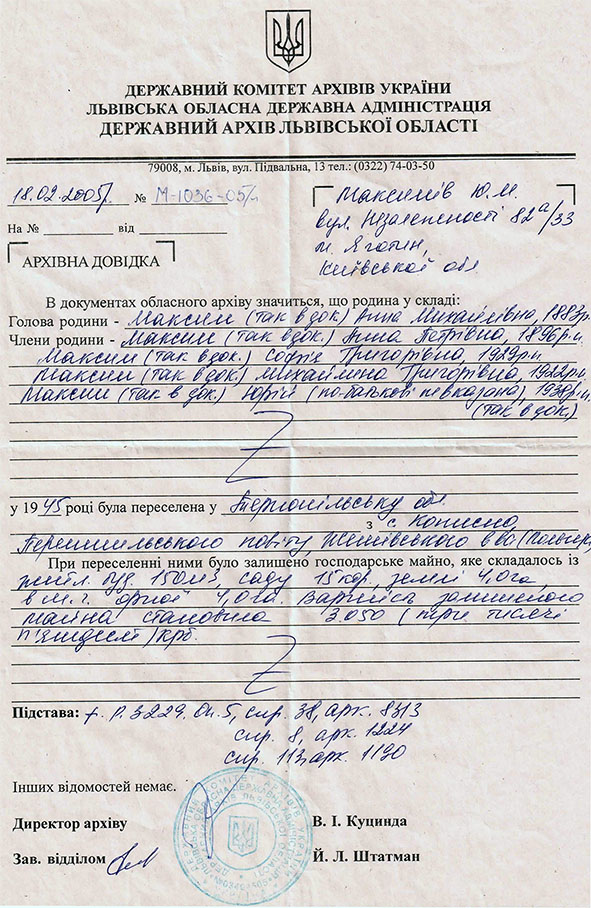 ДЕРЖАВНИЙ КОМІТЕТ АРХІВІВ УКРАЇНИ
ЛЬВІВСЬКА ОБЛАСНА ДЕРЖАВНА АДМІНІСТРАЦІЯ
ДЕРЖАВНИЙ АРХІВ ЛЬВІВСЬКОЇ ОБЛАСТІ
79008, м. Львів, вул. Підвальна, 13 тел.: (0322) 74-03-50
18.02.2005р. № М-1036-05/
Максимів Ю.М.
вул. Незалежності 82а/33
На № від
м. Яготин,
Київської обл.
АРХІВНА ДОВІДКА
В документах обласного архіву значиться, що родина у складі:
Голова родини - Максим (так в док) Анна Михайлівна, 1883р.
Члени родини - Максим (так в док.) Анна Петрівна, 1896р.н.
Максим (так в док.) Софія Григорівна, 1929р.н.
Максим (так в док.) Михайлина Григорівна, 1922р.н.
Максим (так в док.) Юрій (по-батькові не вказана), 1938р.н.
(так в док)
у 1945 році була переселена у Тернопільську обл.
з с. Кописно,
Перемишльського повіту, в-ва (Польща)
При переселенні ними було залишено господарське майно, яке складалось із
житл. буд. 150м3, саду 15 кор., землі 4,0га,
в т.ч. орної 4,0га. Вартість залишеного
майна становила 3.050 (три тисячі
п'ятдесят) крб.
Підстава: ф. Р. 3229. Оп. 5, спр. 38, арк. 8313
спр. 8, арк. 1224
спр. 113, арк. 1190
Інших відомостей немає.
Директор архіву В. І. Куцинда
Зав. відділом Й. Л. Штатман